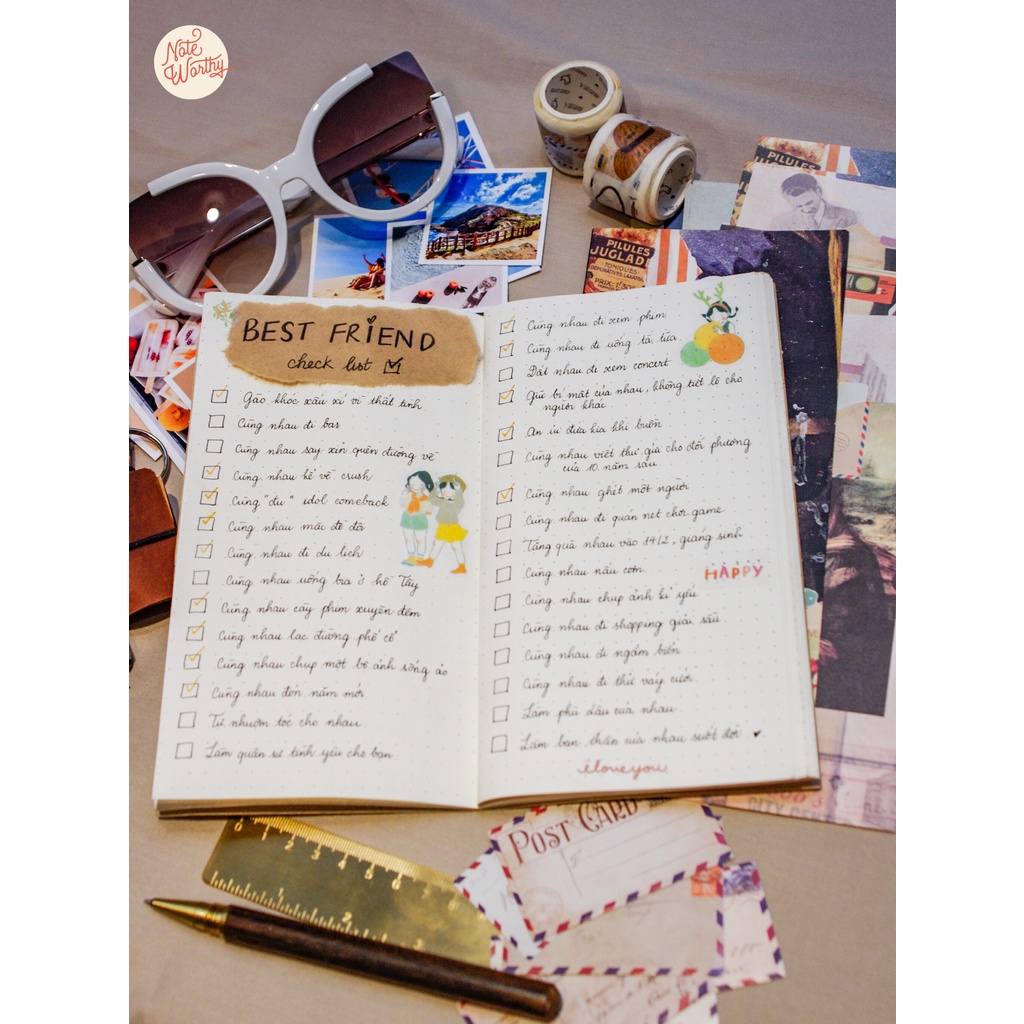 Note
Worthy
PILULES
PILULES
JUGLAD
TONIQUES
BEST FRIEND
check list
Gào khóc xấu xí vì thất tình
Cùng nhau đi bar
Cùng nhau say xỉn quên đường về
Cùng nhau kể về crush
Cùng "đu" idol comeback
Cùng nhau mặc đồ đôi
Cùng nhau đi du lịch
Cùng nhau uống bia ở hồ Tây
Cùng nhau cày phim xuyên đêm
Cùng nhau lạc đường phố cổ
Cùng nhau chụp một bộ ảnh sống ảo
Cùng nhau đón năm mới
Tự nhuộm tóc cho nhau
Làm quân sư tình yêu cho bạn
Cùng nhau đi xem phim
Cùng nhau đi uống tà tữa
Dắt nhau đi xem concert
Giữ bí mật của nhau, không tiết lộ cho
người khác
An ủi đứa kia khi buồn
Cùng nhau viết thư gửi cho đối phương
của 10 năm sau
Cùng nhau ghét một người
Cùng nhau đi quán net chơi game
Tặng quà nhau vào 14/2, giáng sinh
Cùng nhau nấu cơm
HAPPY
Cùng nhau chụp ảnh kỉ yếu
Cùng nhau đi shopping giải sầu
Cùng nhau đi ngắm biển
Cùng nhau đi thử váy cưới
Làm phù dâu của nhau
Làm bạn thân của nhau suốt đời
i love you
POST CARD
0 1 2 3 4 5 6
1 2 3